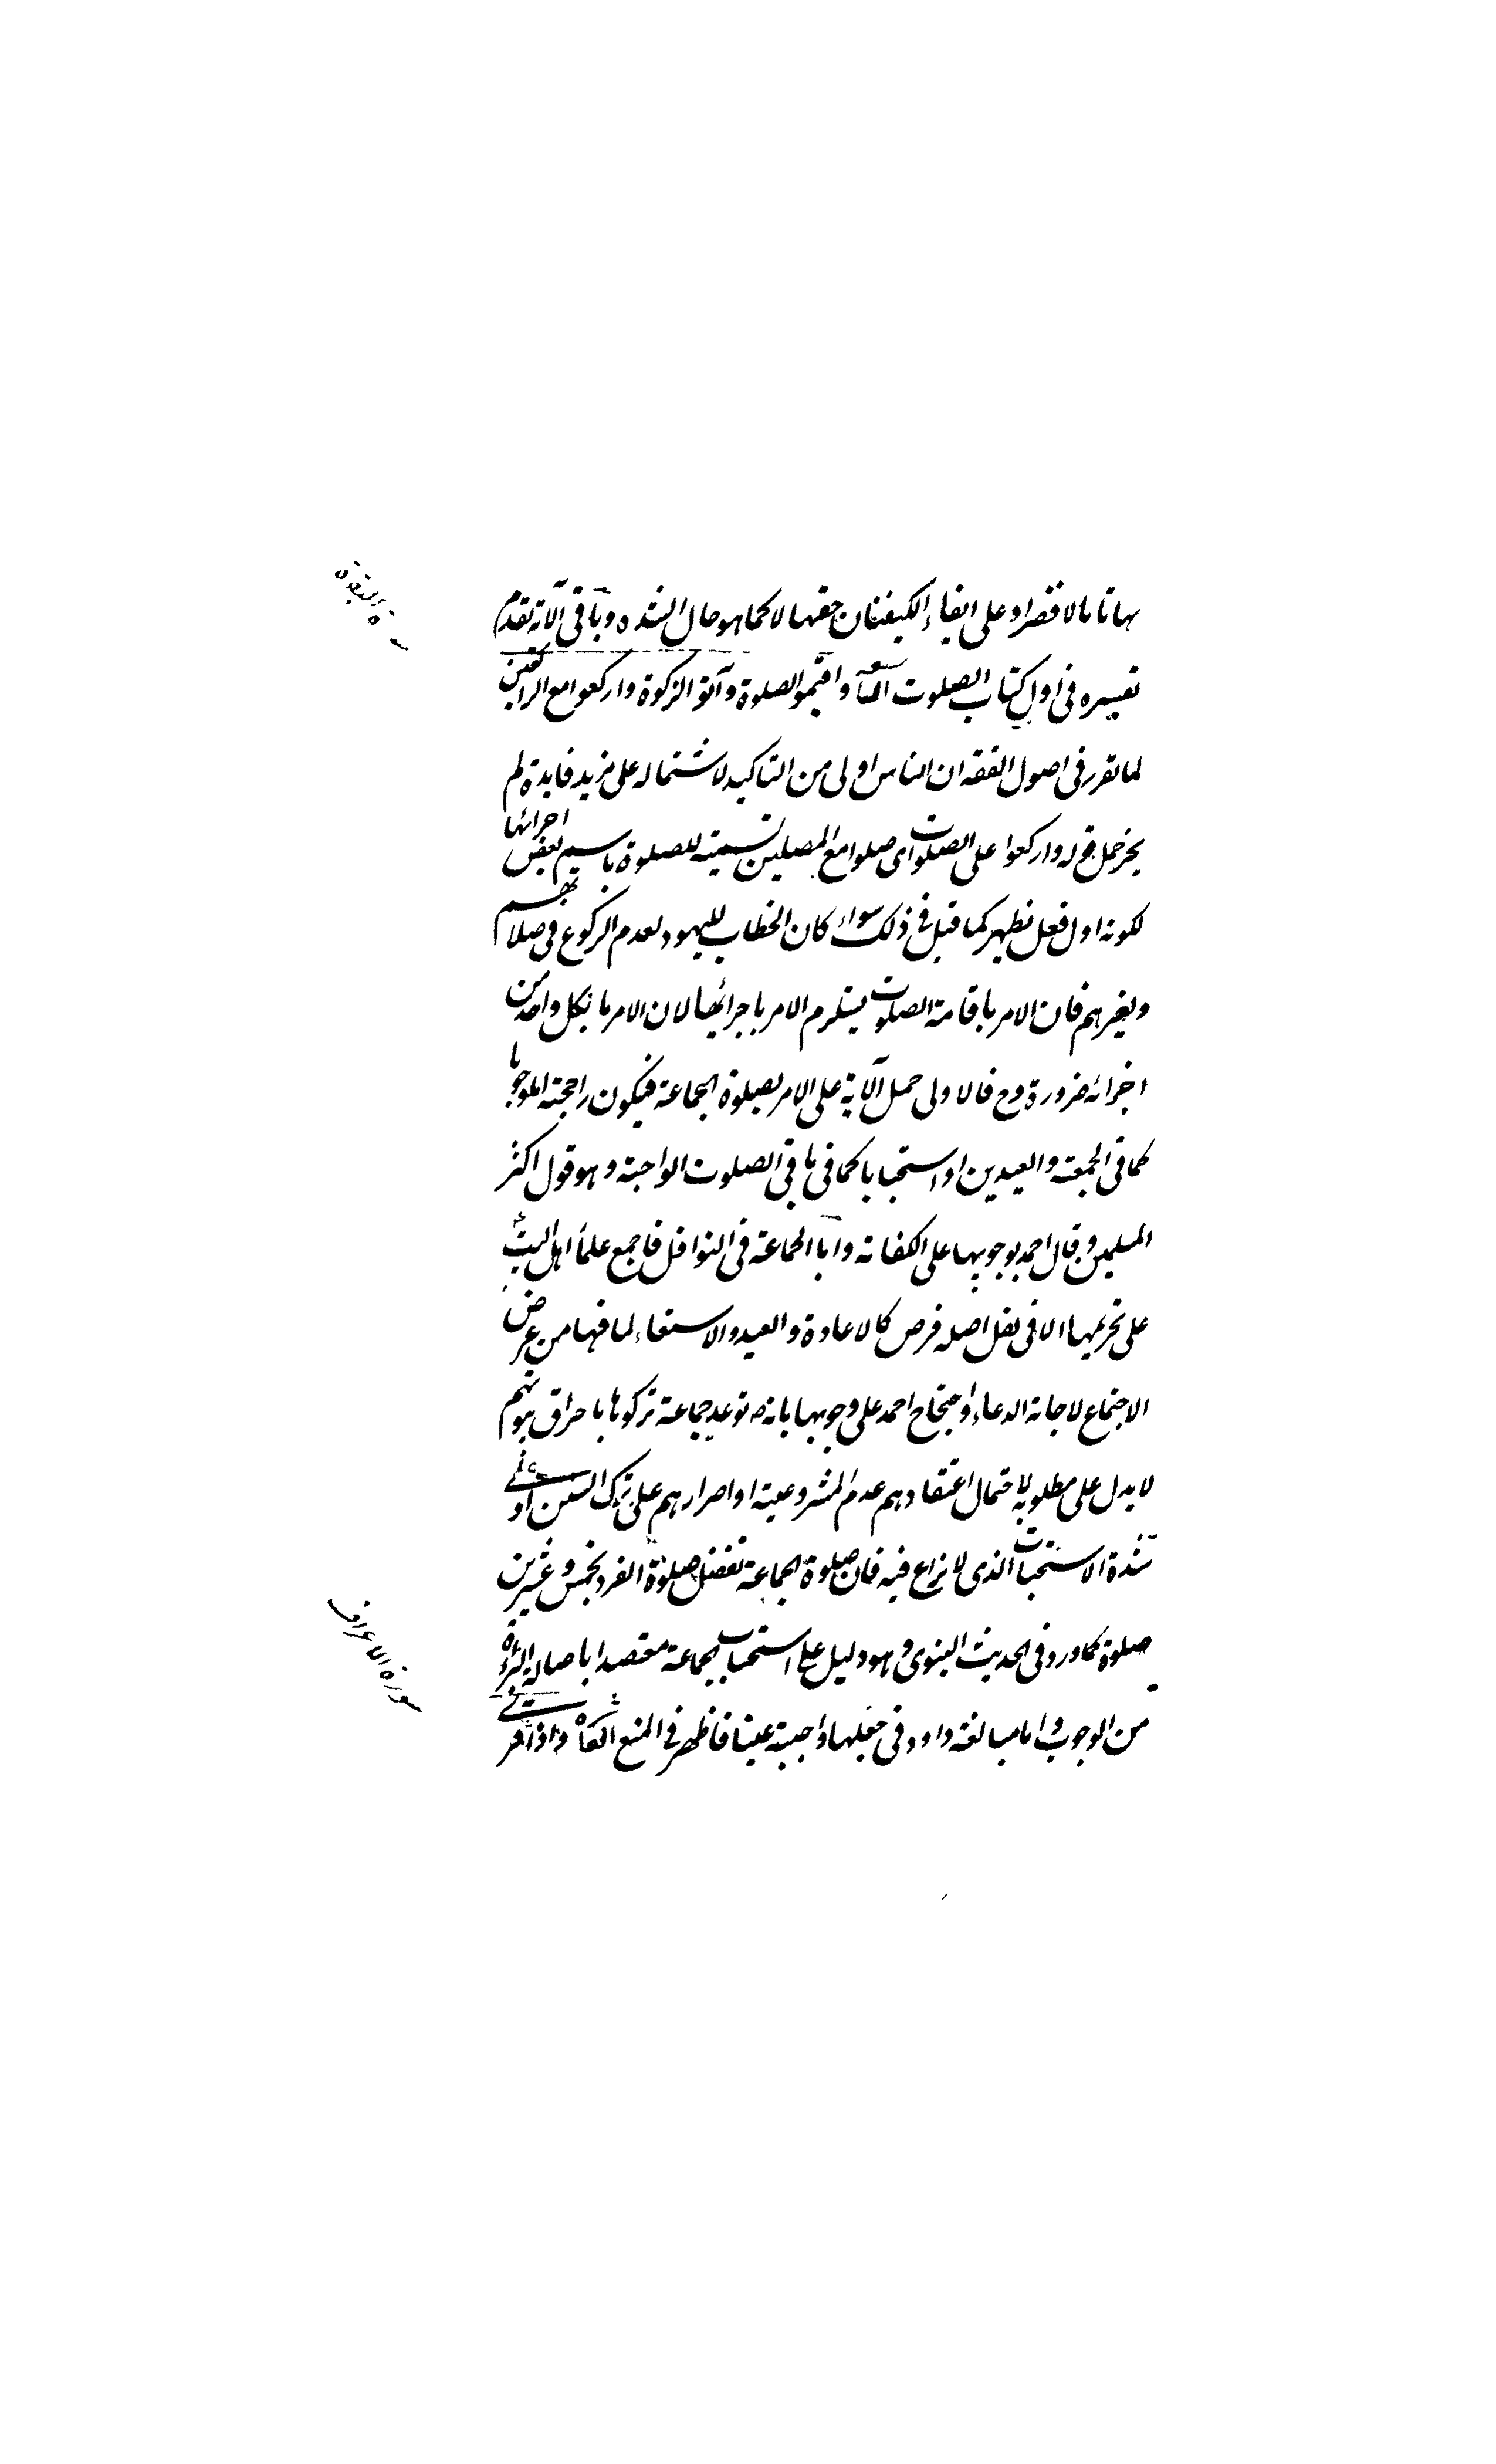 بها تا بالاقصر او على ايفاء الكيفيتان حقها لا كما هو حال الشدة وباقي الآية تقدم
تفسيره في اول كتاب الصلوت الثانية واقيموا الصلوة وآتوا الزكوة واركعوا مع الراكعين
لما تقرر في اصول الفقه ان التاسيس اولى من التاكيد لاشتماله على مزيد فايدة لم
يجز حمل قوله واركعوا على الصلوت اى صلوا مع المصلين تسمية للصلوة باسم بعض اجزائها
لكونه اول فعل يظهر كما قيل في ذلك سواء كان الخطاب لليهود لعدم الركوع في صلاتهم
ولغيرهم فان الامر باقامة الصلوت يستلزم الامر باجزائها لان الامر بالكل واحد من
اجزائه ضرورة وح فالاولى حمل الآية على الامر بصلوة الجماعة فيكون راجحة اما وجوبا
كما في الجمعة والعيدين او استحبابا كما في باقي الصلوت الواجبة وهو قول اكثر
المسلمين وقال احمد بوجوبها على الكفاية واما الجماعة في النوافل فاجمع علماء اهل البيت
على تحريمها الا في نفل اصله فرض كالاعادة والعيد والاستسقاء لما فيها من غرض
الاجتماع لاجابة الدعاء واحتجاج احمد على وجوبها بانه ص توعد جماعة تركوها باحراق بيوتهم
لا يدل على مطلوبه لاحتمال اعتقادهم عدم المشروعية او اصرارهم على ترك السنن او على
شدة الاستحباب الذى لا نزاع فيه فان صلوة الجماعة تفضل صلوة الفرد بخمس وعشرين
صلوة كما ورد في الحديث النبوى وهو دليل على استحباب الجماعة معتضدا باصالة البراءة
من الوجوب واما مبالغة داود في جعلها واجبة عينا فاظهر في المنع الثالثة واذا قرئ
سورة البقرة
سورة الاعراف